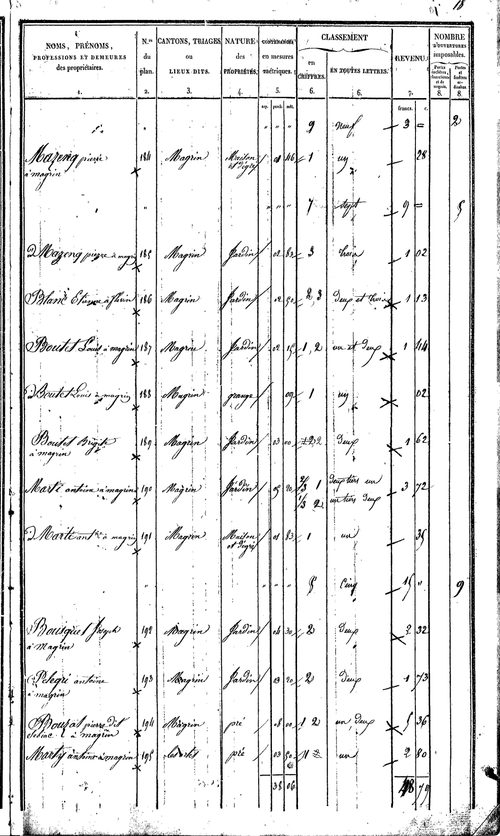 18
NOMS, PRÉNOMS,
PROFESSIONS ET DEMEURES
des propriétaires.
1.
N.os
du
plan.
2.
CANTONS, TRIAGES
OU
LIEUX DITS.
3.
NATURE
des
PROPRIÉTÉS.
4.
CONTENANCE
en mesures
métriques.
5.
CLASSEMENT
EN
CHIFFRES.
6.
EN TOUTES LETTRES.
6.
REVENU.
7.
NOMBRE
D'OUVERTURES
imposables.
8.
8.
francs. c.
" " " " 9 neuf 3 = 2
Mazenq pierre 184 Magrin Maison 01 46 1 un 28
à magrin et dégs
" " " " 7 sept 9 = 5
d Mazenq pierre à magrin 185 Magrin Jardin 02 82 3 trois 1 02
Blanc à 186 Magrin Jardin 02 50 2, 3 deux et trois 1 13
Boutet Louis à magrin 187 Magrin Jardin 02 15 1, 2 un et deux 1 44
d Boutet Louis à magrin 188 Magrin grange 09 1 un 02
Boutet Brigite 189 Magrin Jardin 03 00 2 deux 1 62
à magrin
Marti antoine à magrin 190 Magrin Jardin 05 20 2/3 1 deux tiers un 3 72
1/3 2 un tiers deux
d Marti ant.e à magrin 191 Magrin Maison 01 83 1 un 35
et dégs
" " " " 5 Cinq 15 " 9
Bousquet Joseph 192 Magrin Jardin 04 30 2 deux 2 32
à Magrin
Pelegri antoine 193 Magrin Jardin 03 20 2 deux 1 73
à magrin
Bouzat pierre dit 194 Magrin pré 08 00 1 2 un, deux 5 36
à magrin
Martÿ antoine à magrin 195 pré 03 50 1 un 2 80
38 06 48 79